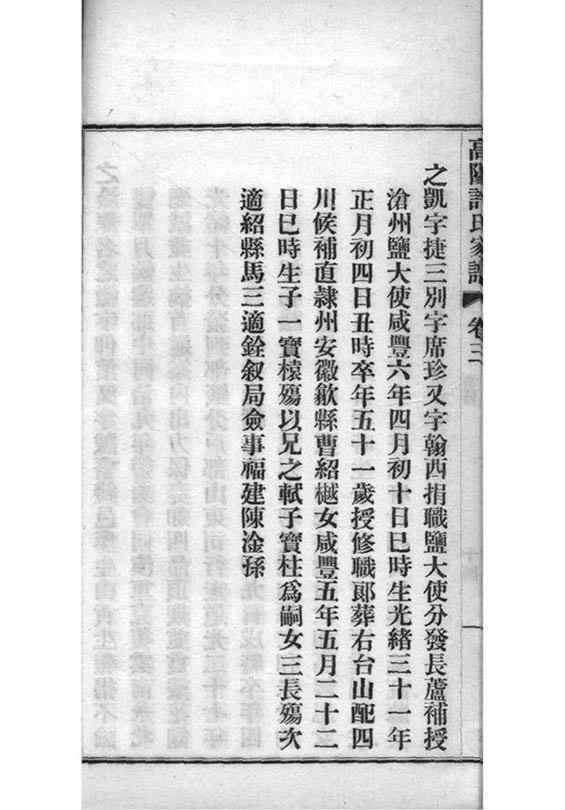 高陽許氏家譜 卷三
之凱字捷三別字席珍又字翰西捐職鹽大使分發長蘆補授
滄州鹽大使咸豐六年四月初十日巳時生光緒三十一年
正月初四日丑時卒年五十一歲授修職郞葬右台山配四
川候補直隷州安徽歙縣曹紹樾女咸豐五年五月二十二
日巳時生子一寶榬殤以兄之軾子寶柱爲嗣女三長殤次
適紹縣馬三適銓叙局僉事福建陳淦孫